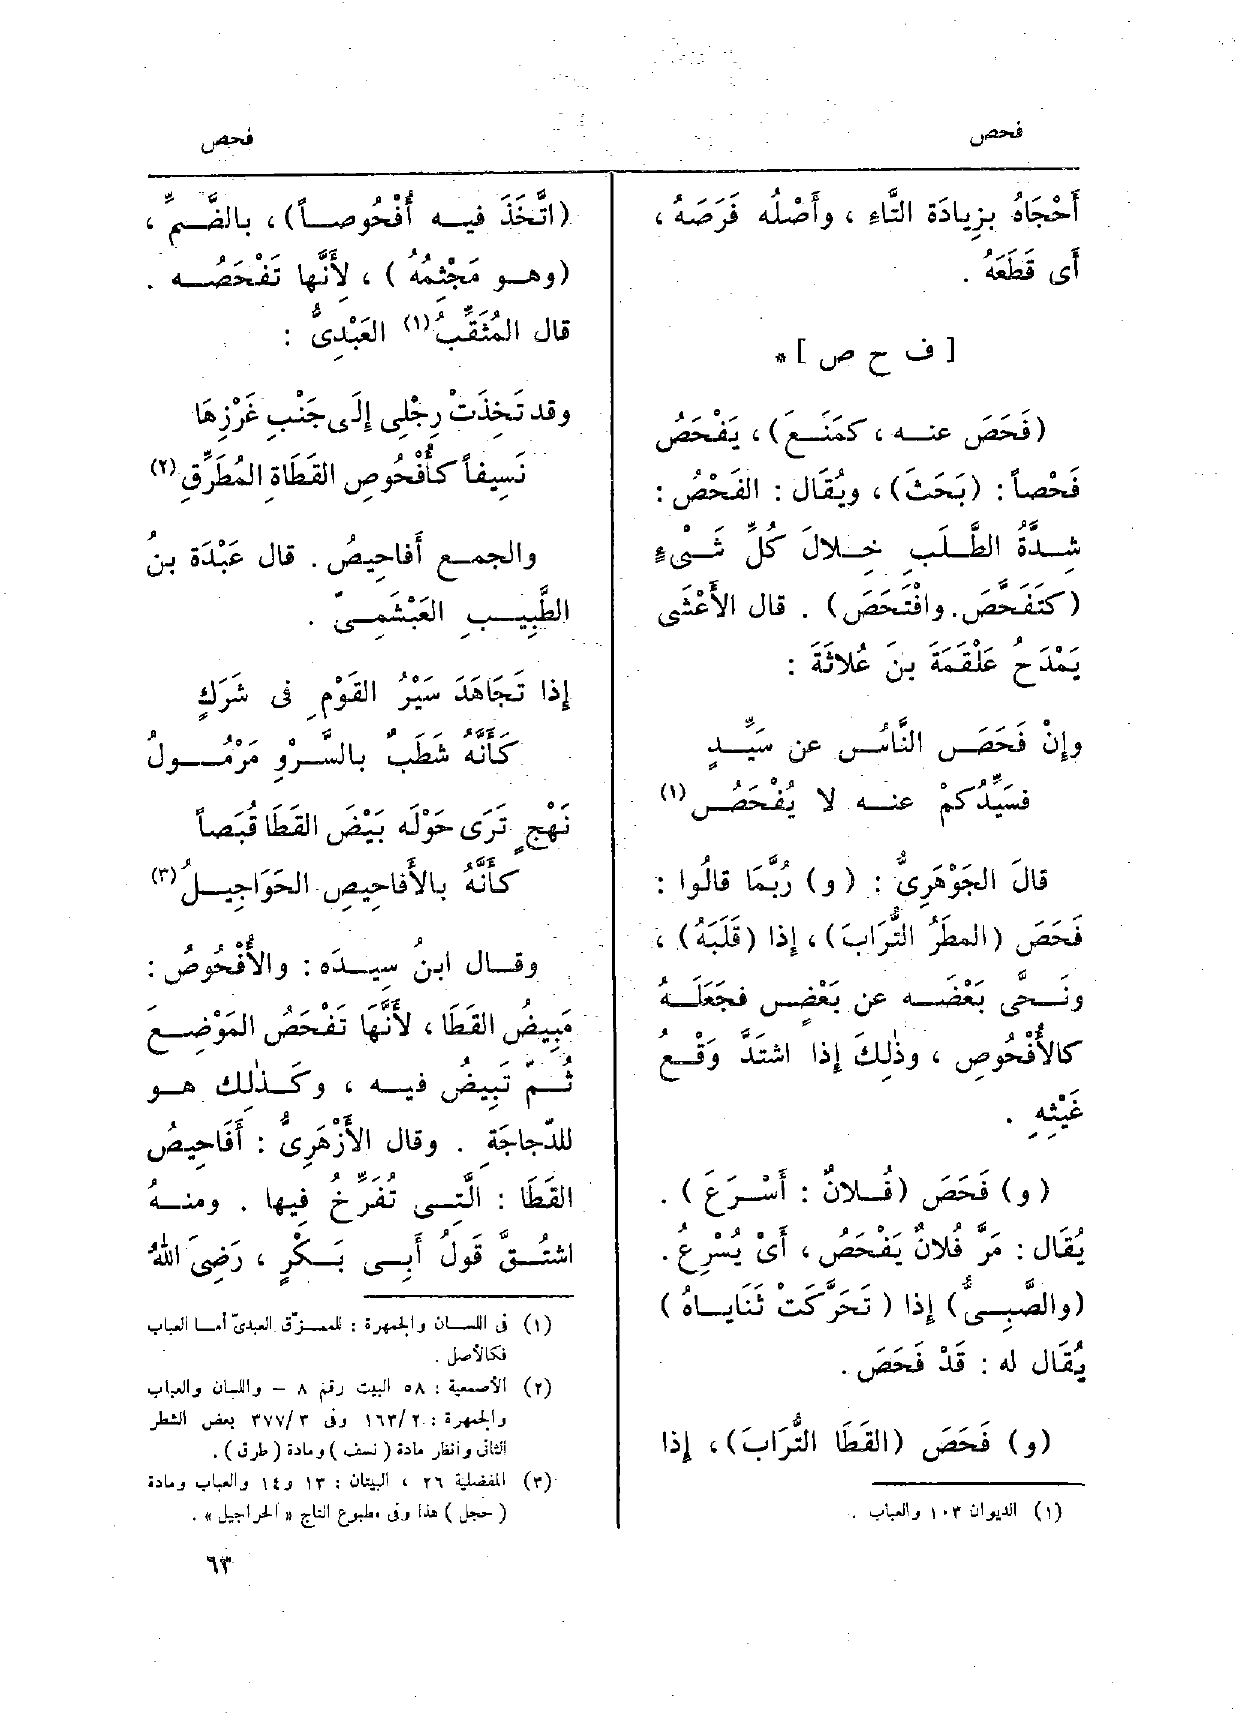 فحص
فحص
أَحْجَاهُ بزِيادَة التَّاءِ ، وأَصْلُه فَرَصَهُ ،
أَى قَطَعَهُ .
[ ف ح ص ] *
(فَحَصَ عنـه ، كمَنَـعَ) ، يَفْحَصُ
فَحْصاً : (بَحَثَ) ، ويُقَال : الفَحْصُ :
شِـدَّةُ الطَّـلَبِ خِـلالَ كُلِّ شَـىْءٍ
(كتَفَحَّصَ . وافْتَحَصَ) . قال الأَعْشَى
يَمْدَحُ عَلْقَمَةَ بنَ عُلاثَةَ :
وإِنْ فَحَصَ النَّاسُ عن سَيِّـدٍ
فسَيِّدُكمْ عنـه لا يُفْحَصُ (١)
قالَ الجَوْهَرِىُّ : (و) رُبَّمَا قالُوا :
فَحَصَ (المطَرُ التُّرَابَ) ، إِذا (قَلَبَهُ) ،
ونَـحَّى بَعْضَـه عن بَعْضٍ فجَعَلَـهُ
كالأُفْحُوصِ ، وذٰلِكَ إِذا اشتَدَّ وَقْـعُ
غَيْثِهِ .
(و) فَحَصَ (فُـلانٌ : أَسْـرَعَ) .
يُقَال : مَرَّ فُلانٌ يَفْحَصُ ، أَىْ يُسْرِعُ .
(والصَّبِـىُّ) إِذا (تَحَرَّكَتْ ثَنَايـاهُ)
يُقَال له : قَدْ فَحَصَ .
(و) فَحَصَ (القَطَا التُّرَابَ) ، إِذا
(١) الديوان ١٠٣ والعباب .
(اتَّخَذَ فيـه أُفْحُوصـاً) ، بالضَّـمِّ ،
(وهـو مَجْثِمُهُ) ، لأَنَّها تَفْحَصُـه .
قال المُثَقِّبُ(١) العَبْدِىُّ :
وقد تَخِذَتْ رِجْلِى إِلَى جَنْبِ غَرْزِهَا
نَسِيفاً كأُفْحُوصِ القَطَاةِ المُطَرِّقِ (٢)
والجمـع أَفاحِيصُ . قال عَبْدَة بنُ
الطَّبِيـبِ العَبْشَمِـىّ .
إِذا تَجَاهَدَ سَيْرُ القَوْمِ فى شَرَكٍ
كأَنَّه شَطَبٌ بالسَّرْوِ مَرْمُـولُ
نَهْجٍ تَرَى حَوْلَه بَيْضَ القَطَا قُبَصاً
كأَنَّهُ بالأَفاحِيصِ الحَوَاجِيـلُ (٣)
وقـال ابنُ سِيـدَه : والأُفْحُوصُ :
مَبِيضُ القَطَا ، لأَنَّهَا تَفْحَصُ المَوْضِـعَ
ثُـمَّ تَبِيضُ فيـه ، وكَـذٰلك هـو
للدّجاجَةِ . وقال الأَزْهَرِىُّ : أَفَاحِيصُ
القَطَا : الَّتِـى تُفَرِّخُ فِيها . ومنـهُ
اشتُـقَّ قَولُ أَبِـى بَـكْرٍ ، رَضِىَ اللهُ
(١) فى اللسـان والجمهرة : للممـزّق العبدىّ أمـا العباب
فكالأصل .
(٢) الأصمعية : ٥٨ البيت رقم ٨ – واللسان والعباب
والجمهرة : ١٦٣/٢ وفى ٣٧٧/٣ بعض الشطر
الثانى وانظر مادة (نسف) ومادة (طرق) .
(٣) المفضلية ٢٦ ، البيتان : ١٣ و١٤ والعباب ومادة
(حجل) هذا وفى مطبوع التاج «الحراجيل» .
٦٣